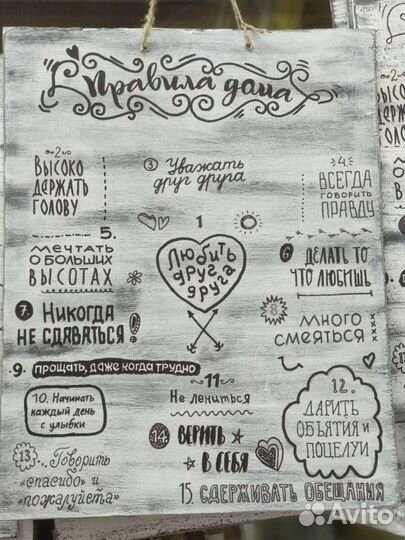 Правила дома
1
Любить
друг
друга
-2-
Высоко
держать
голову
3 Уважать
друг друга
4.
Всегда
говорить
правду
5.
мечтать
о больших
высотах
6 делать то
что любишь
7. Никогда
не сдаваться!
8
много
смеяться
9. прощать, даже когда трудно
10. Начинать
каждый день
с улыбки
-11-
Не лениться
12.
Дарить
объятия и
поцелуи
13 Говорить
«спасибо» и
«пожалуйста»
14. Верить
в себя
15. Сдерживать обещания
Avito